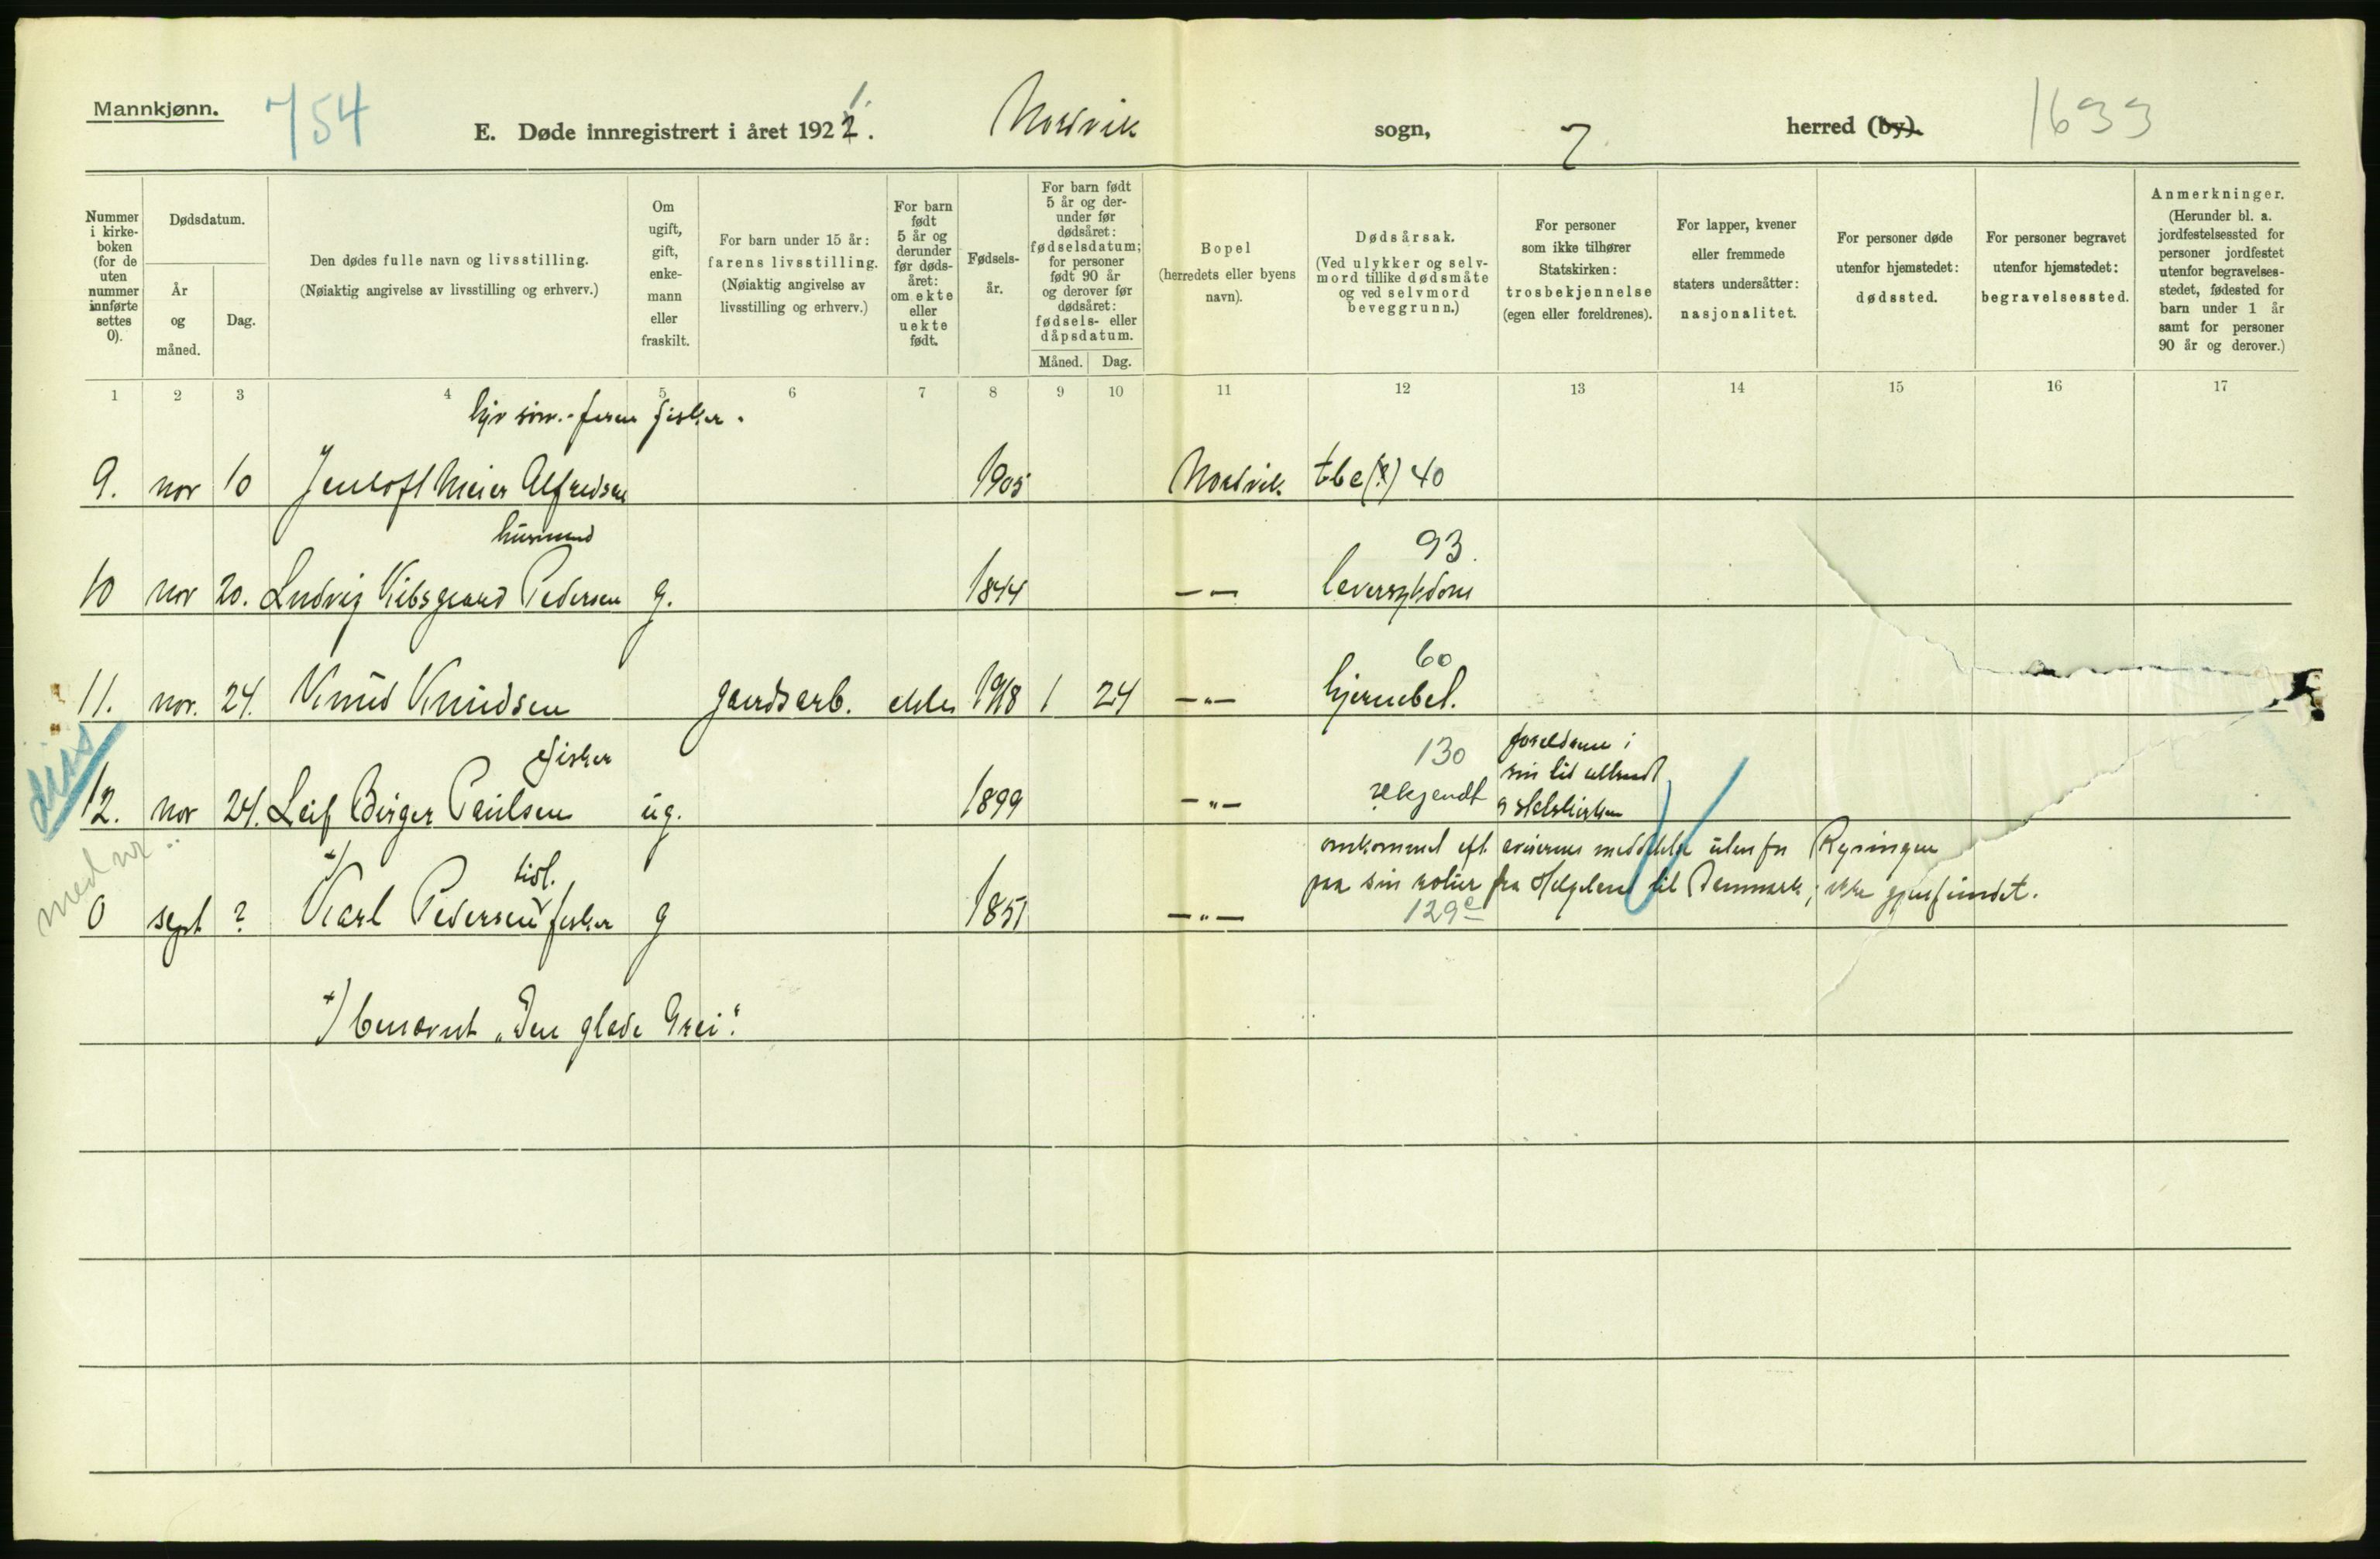 Mannkjønn.
754
E. Døde innregistrert i året 1922.
1.
Nordvik
sogn,
7
herred (by).
1633
Nummer i kirke-boken (for de uten nummer innførte settes 0).
Dødsdatum.
År og måned.
Dag.
Den dødes fulle navn og livsstilling.
(Nøiaktig angivelse av livsstilling og erhverv.)
Om ugift, gift, enke-mann eller fraskilt.
For barn under 15 år: farens livsstilling.
(Nøiaktig angivelse av livsstilling og erhverv.)
For barn født 5 år og derunder før døds-året: om ekte eller uekte født.
Fødsels-år.
For barn født 5 år og der-under før dødsåret: fødselsdatum; for personer født 90 år og derover før dødsåret: fødsels- eller dåpsdatum.
Måned.
Dag.
Bopel
(herredets eller byens navn).
Dødsårsak.
(Ved ulykker og selv-mord tillike dødsmåte og ved selvmord beveggrunn.)
For personer som ikke tilhører Statskirken: trosbekjennelse (egen eller foreldrenes).
For lapper, kvener eller fremmede staters undersåtter: nasjonalitet.
For personer døde utenfor hjemstedet: dødssted.
For personer begravet utenfor hjemstedet: begravelsessted.
Anmerkninger.
(Herunder bl. a. jordfestelsessted for personer jordfestet utenfor begravelses-stedet, fødested for barn under 1 år samt for personer 90 år og derover.)
1 2 3 4 5 6 7 8 9 10 11 12 13 14 15 16 17
fisker.
9. nov 10 Jentoft Meier Alfredsen 1905 Nordvik tbc(?) 40
husmand
93.
10 nov 20. Ludvig Kibsgaard Pedersen g. 1844 — — leversykdom
60
11. nov. 24. Knud Knudsen gaardsarb. ekte 1918 1 24 —"— hjernebet.
fisker
130
foreldrene i
sin tid utmeldt
12. nov 24. Leif Birger Paulsen ug. 1899 —"— ukjendt
av statskirken
diss
med nr
omkommet eft. avisernes meddelelse utenfor Ryvingen
paa sin rotur fra Helgeland til Danmark; ikke gjenfundet.
tidl.
0 sept ? x) Karl Pedersen fisker g 1851 —"— 129c
x) benævnt „Den glade Grei".